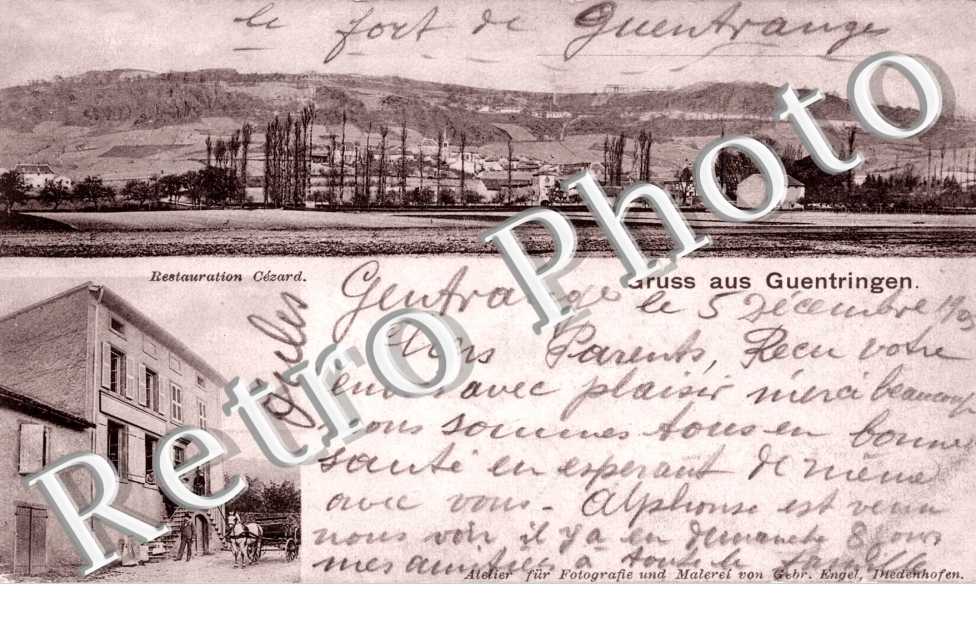 le fort de Guentrange
Restauration Cézard.
Gruss aus Guentringen.
Gentrange le 5 Décembre
Parents, Recu votre
avec plaisir merci beaucoup
nous sommes tous en bonne
santé en esperant de même
avec vous. Alphonse est venu
nous voir il y a en demanche 8 jours
mes amitiés à toute la famille
Atelier für Fotografie und Malerei von Gebr. Engel, Diedenhofen.
Retro Photo